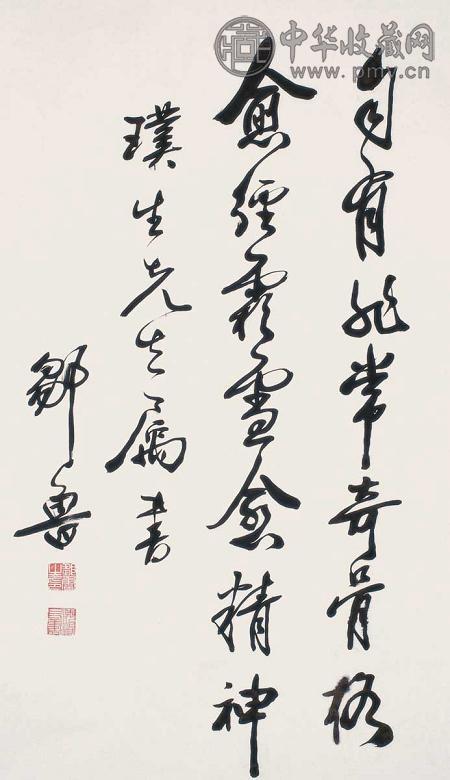 自有非常奇骨格
愈經霜雪愈精神
璞生先生屬書
鄒魯
中华收藏网
www.pmv.cn